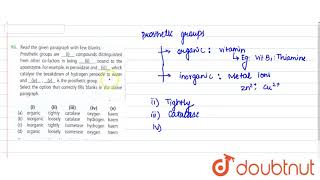 46. Read the given paragraph with few blanks.
Prosthetic groups are (i) compounds distinguished
from other co-factors in being (ii) bound to the
apoenzyme. For example, in peroxidase and (iii), which
catalyse the breakdown of hydrogen peroxide to water
and (iv), (v) is the prosthetic group.
Select the option that correctly fills blanks in the above
paragraph.
(i) (ii) (iii) (iv) (v)
(a) organic tightly catalase oxygen haem
(b) organic loosely catalase hydrogen haem
(c) inorganic tightly isomerase hydrogen haem
(d) organic loosely isomerase oxygen haem
Prosthetic groups
→ organic : vitamin
↳ Eg: Vit B1: Thiamine
→ inorganic : Metal Ions
Zn2+ Cu2+
ii) Tightly
iii) Catalase
iv)
doubtnut